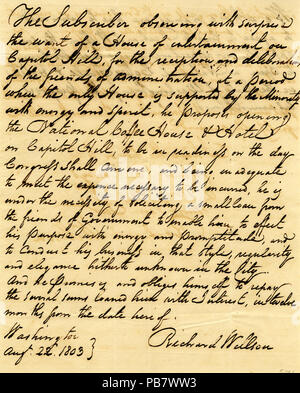 The Subscriber observing with surprize
the want of a House of entertainment on
Capitol Hill, for the reception and deliberation
of the friends of administration, at a period
when the only House is supported by the Minority
with energy and Spirit, he proposes opening
the National Coffee House & Hotel
on Capitol Hill, to be in readiness on the day
Congress shall convene and being in adequate
to meet the expence necessary to be incurred, he is
under the necessity of soliciting a small loan from
the friends of Government to enable him, to effect
his Purpose with energy and Promptitude, and
to conduct his business in that style, regularity
and elegance hitherto unknown in the City
And he Promises and obliges himself to repay
the several sums loaned him with Interest, in twelve
months from the date here of.
Washington
Augt. 22. 1803 }
Richard Willson
alamy
PB7WW3
www.alamy.com